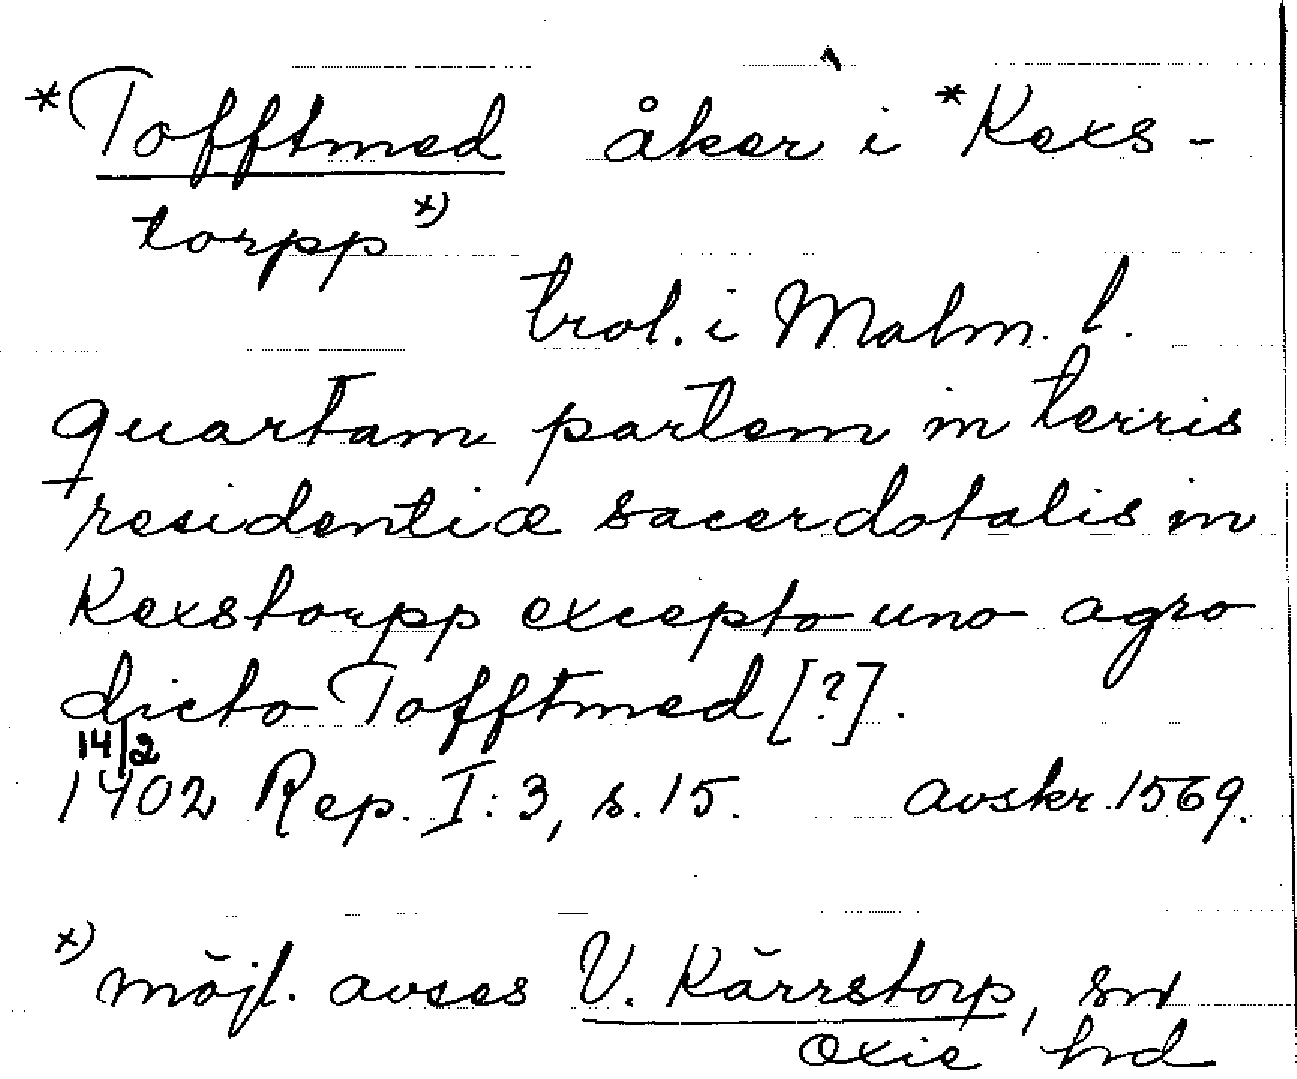 *Tofftmed åker i *Kexs-
torpp x)
trol. i Malm. l.
quartam partem in terris
residentiæ sacerdotalis in
Kexstorpp excepto uno agro
dicto Tofftmed [?].
14/2
1402 Rep. I: 3, s. 15. avskr. 1569.
x) möjl. avses V. Kärrstorp, sn
Oxie hd